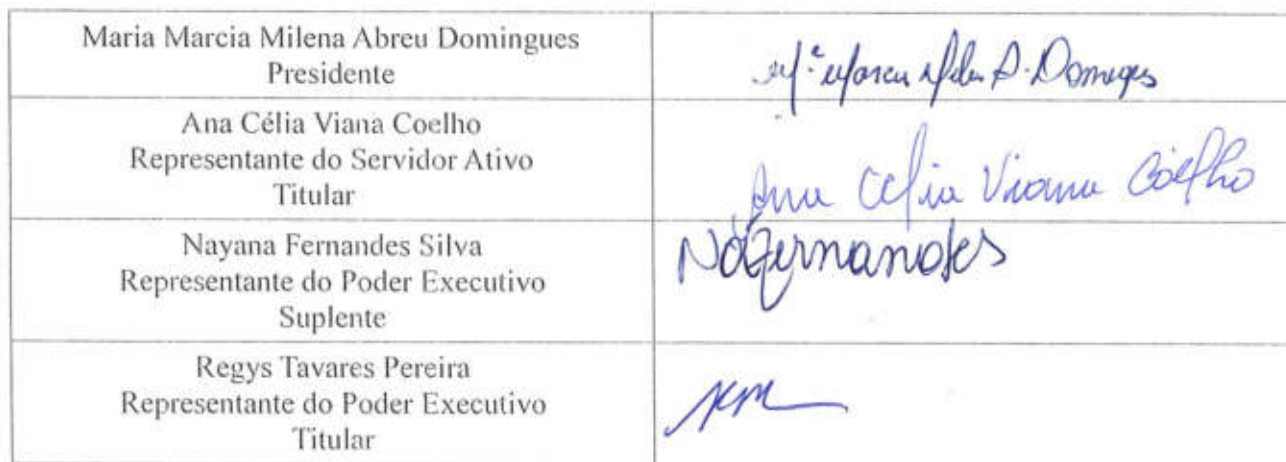 Maria Marcia Milena Abreu Domingues
Presidente
Ana Célia Viana Coelho
Representante do Servidor Ativo
Titular
Ana Celia Viana Coelho
Nayana Fernandes Silva
Representante do Poder Executivo
Suplente
Regys Tavares Pereira
Representante do Poder Executivo
Titular